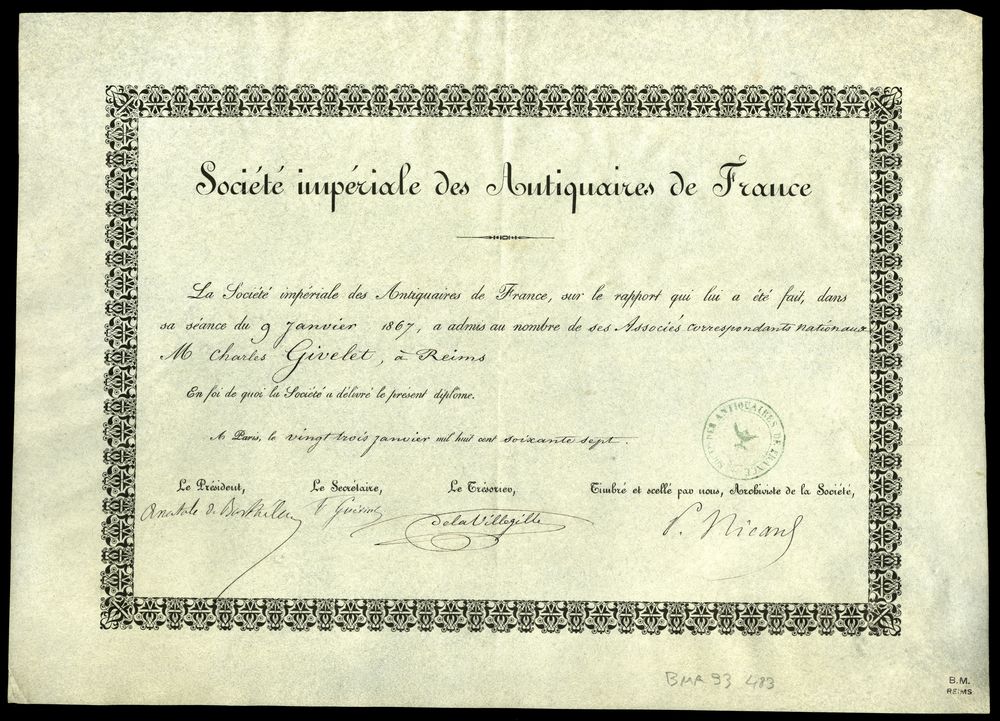 Société impériale des Antiquaires de France
La Société impériale des Antiquaires de France, sur le rapport qui lui a été fait, dans
sa séance du 9 Janvier 1867, a admis au nombre de ses Associés correspondants nationaux
M Charles Givelet, à Reims
En foi de quoi la Société a délivré le présent diplôme.
A Paris, le vingt trois janvier mil huit cent soixante sept.
ANTIQUAIRES DE FRANCE
Le Président,
Le Secrétaire,
Le Trésorier,
Timbré et scellé par nous, Archiviste de la Société,
Anatole de Barthélemy
F Guérin
De la Villegille
P. Nicard
BMR 93 483
B.M.
REIMS